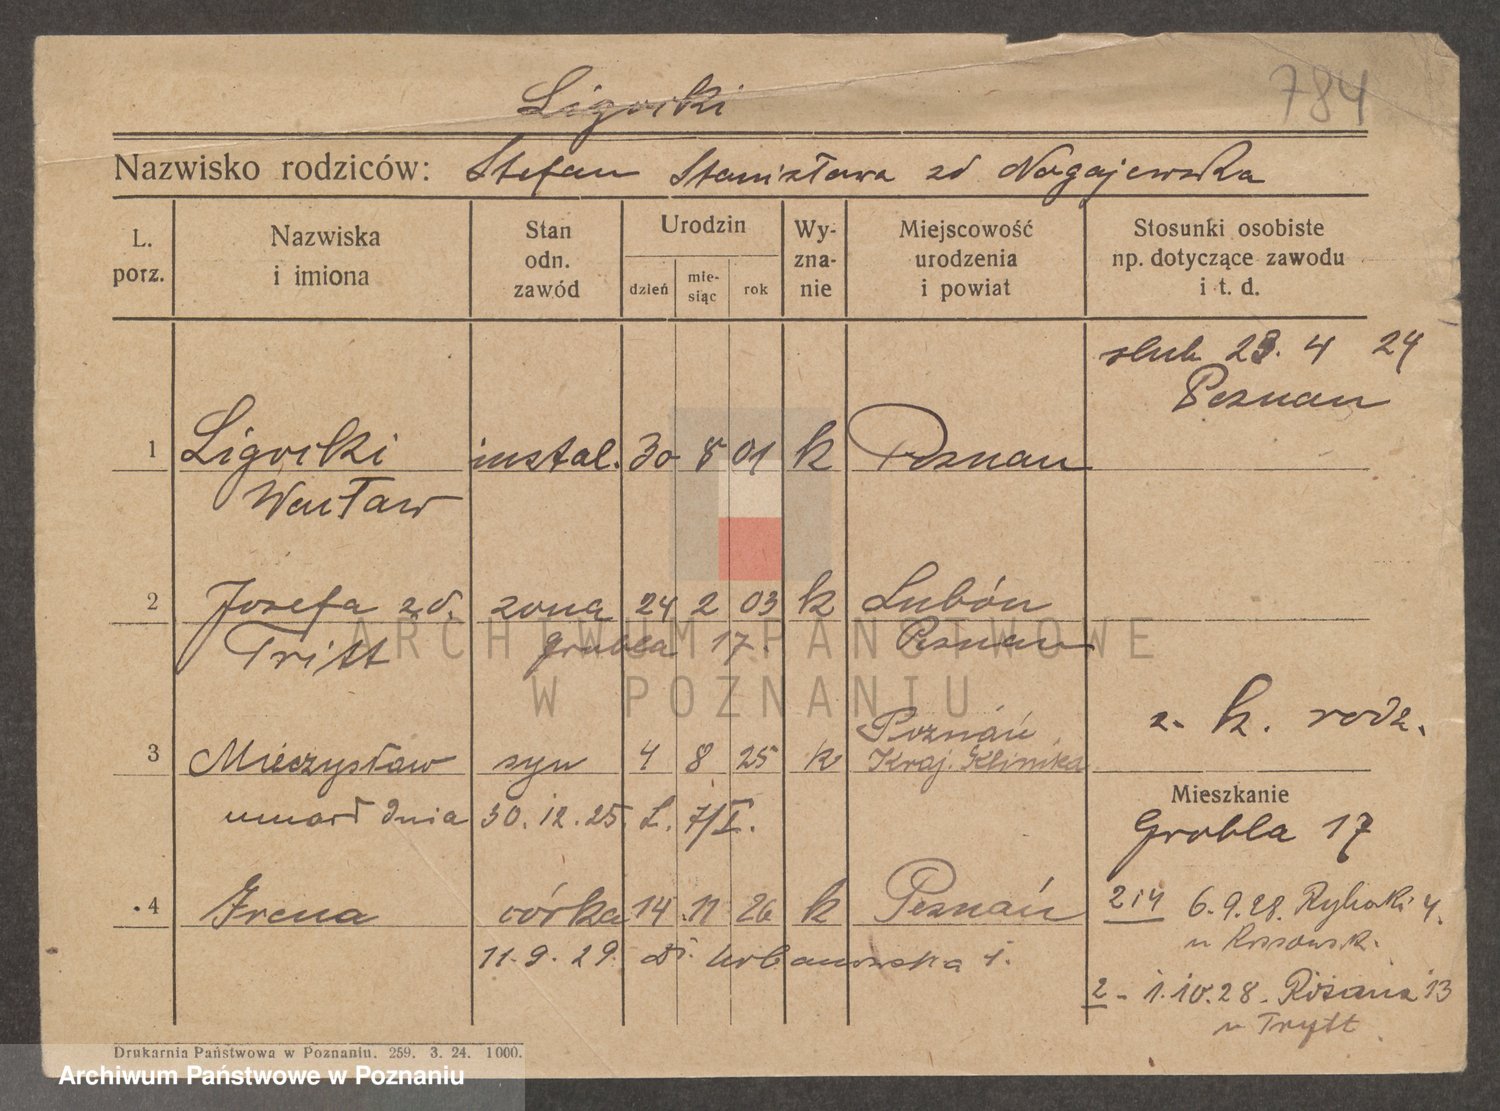 784
Ligocki
Nazwisko rodziców: Stefan Stanisława zd Nogajewska
L. porz.
Nazwiska i imiona
Stan odn. zawód
Urodzin
dzień
mie-siąc
rok
Wy-zna-nie
Miejscowość urodzenia i powiat
Stosunki osobiste np. dotyczące zawodu i t. d.
slub 23. 4 24
Poznan
1 Ligocki instal. 30 8 01 k Poznan
Wacław
2 Josefa zd. zona 24 2 03 k Lubón
Tritt Grobla 17. Poznan
ARCHIWUM PAŃSTWOWE
W POZNANIU
z. k. rodz.
Poznań
3 Mieczysław syn 4 8 25 k Kraj. Klinika
umarł dnia 30.12.25. L. 7/I.
Mieszkanie
Grobla 17
4 Irena córka 14 11 26 k Poznań
2i4 6.9.28. Rybaki 4.
u
11.9.29. Urbanowska 1.
2 - 1.10.28. Różana 13
u Trytt
Drukarnia Państwowa w Poznaniu. 259. 3. 24. 1000.
Archiwum Państwowe w Poznaniu